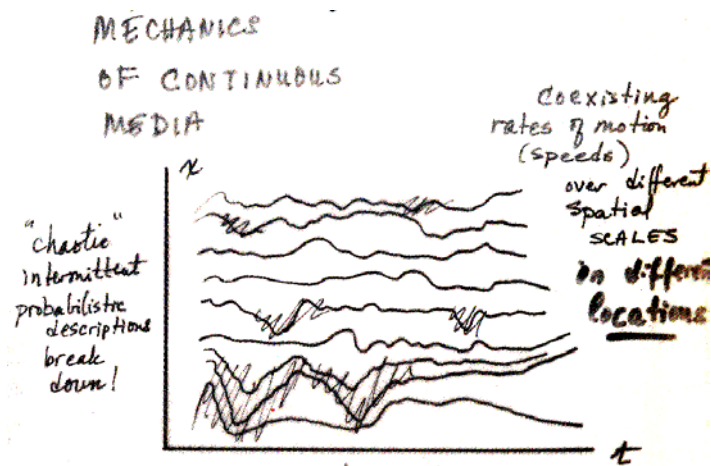 MECHANICS
OF CONTINUOUS
MEDIA
Coexisting
rates of motion
(speeds)
over different
Spatial
SCALES
in different
locations
x
"chaotic"
intermittent
probabilistic
descriptions
break
down!
t